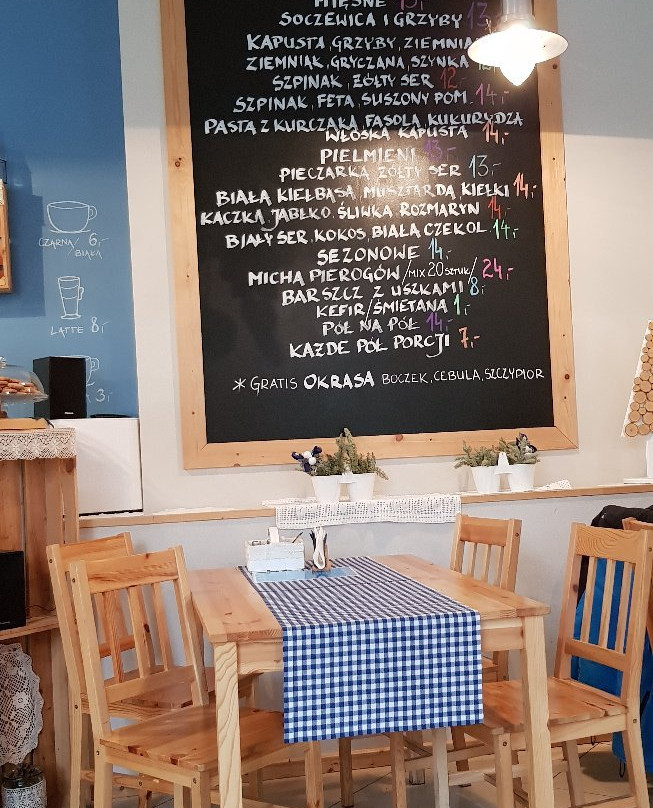 MIĘSNE 13,-
SOCZEWICA I GRZYBY 13
KAPUSTA, GRZYBY, ZIEMNIA
ZIEMNIAK, GRYCZANA, SZYNKA
SZPINAK, ŻÓŁTY SER 12,-
SZPINAK, FETA, SUSZONY POM. 14,-
PASTA Z KURCZAKA, FASOLA, KUKURYDZA
WŁOSKA KAPUSTA 14,-
PIELMIENI 13,-
PIECZARKA ŻÓŁTY SER 13,-
BIAŁA KIEŁBASA, MUSZTARDA, KIEŁKI 14,-
KACZKA, JABŁKO, ŚLIWKA ROZMARYN 14,-
BIAŁY SER, KOKOS, BIAŁA CZEKOL. 14,-
SEZONOWE 14,-
MICHA PIEROGÓW /MIX 20 SZTUK/ 24,-
BARSZCZ Z USZKAMI 8,-
KEFIR/ŚMIETANA 1,-
PÓŁ NA PÓŁ 14,-
KAŻDE PÓŁ PORCJI 7,-
* GRATIS OKRASA BOCZEK, CEBULA, SZCZYPIOR
CZARNA/ 6,-
BIAŁA
LATTE 8,-
3,-